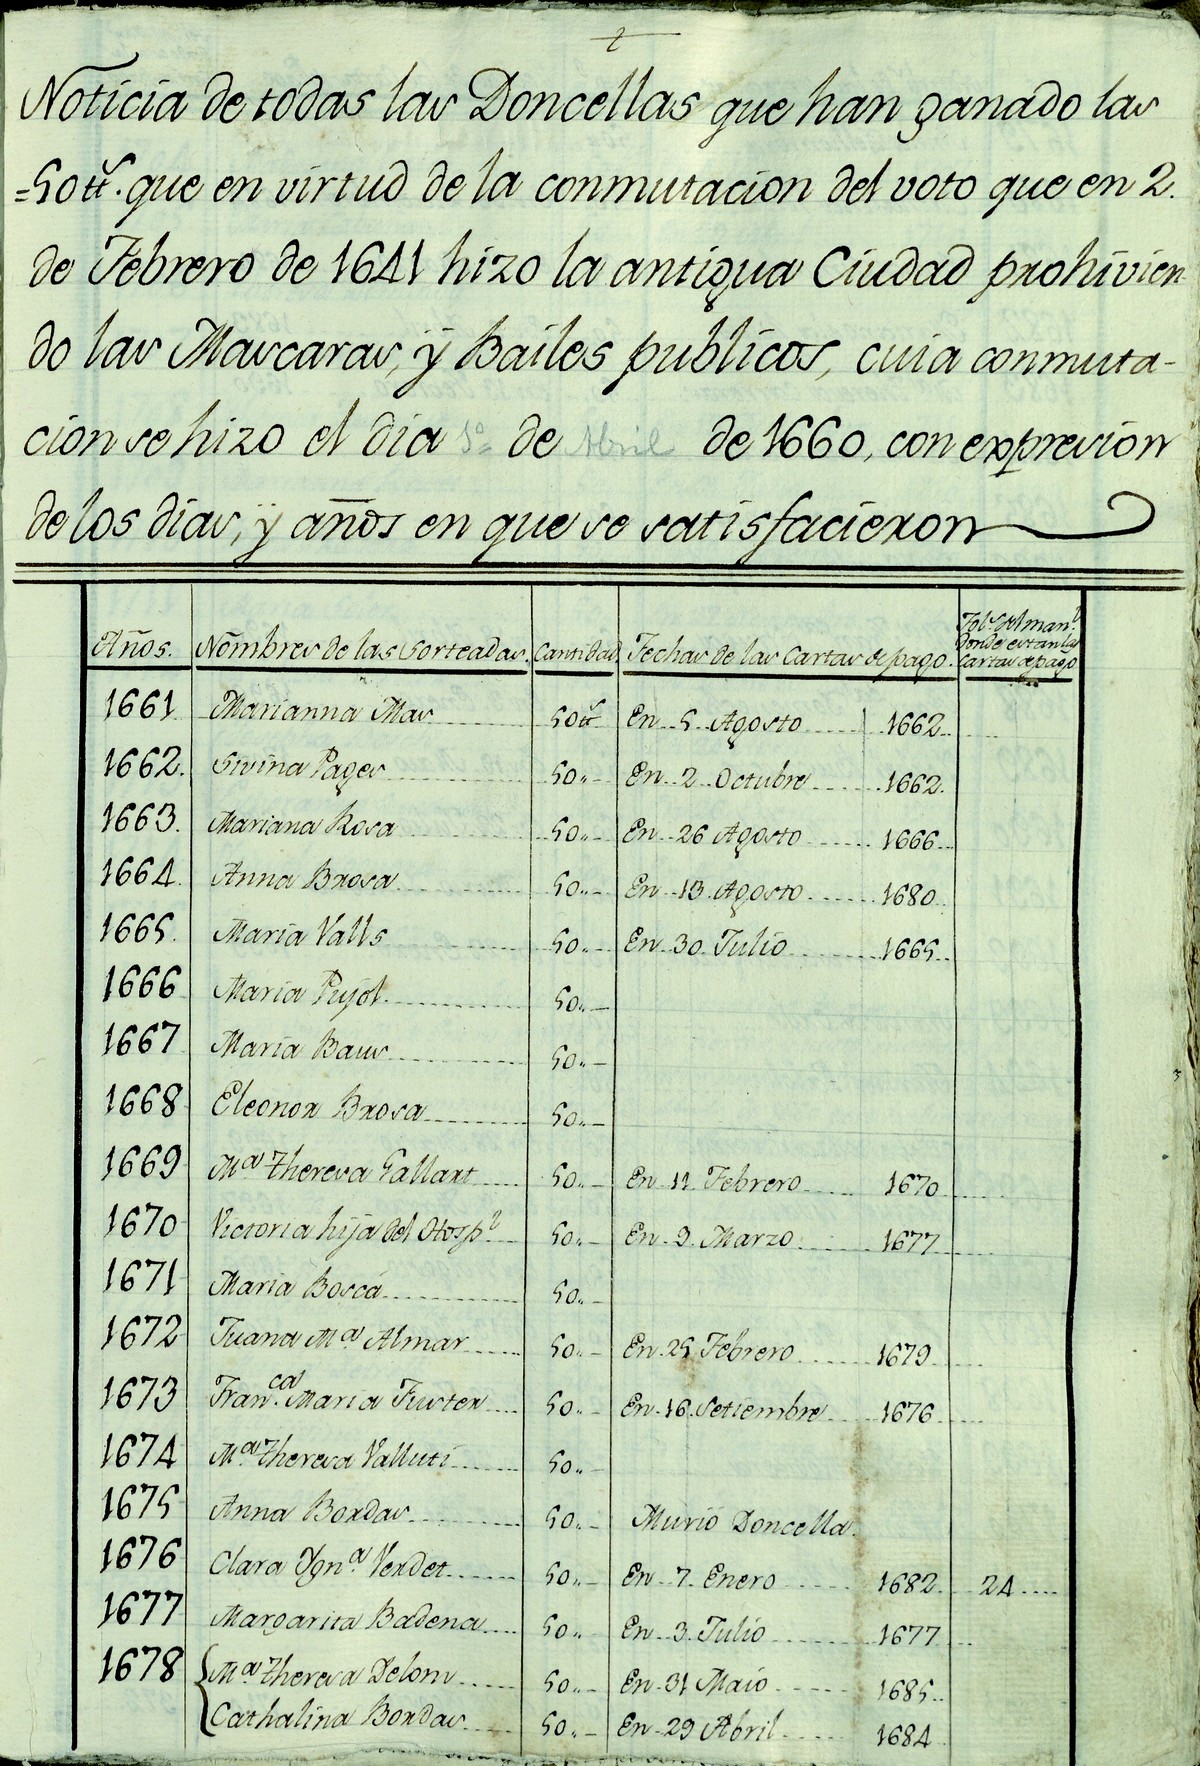 2
Noticia de todas las Doncellas que han ganado las
=50 ₶. que en virtud de la conmutacion del voto que en 2.
de Febrero de 1641 hizo la antigua Ciudad prohivien
do las Mascaras, ÿ Bailes publicos, cuia conmuta-
cion se hizo el dia 1º de Abril de 1660, con expresion
de los dias, ÿ años en que se satisfacieron
Años. Nombres de las Sorteadas. Cantidad Fechas de las Cartas de pago. Fol.s del man.l donde estan las Cartas de pago
1661 Marianna Mas 50 ₶ En 5 Agosto 1662
1662. Sivina Pages 50.. En 2 Octubre 1662.
1663. Mariana Rosa 50.. En 26 Agosto 1666
1664. Anna Brosa 50.. En 13 Agosto 1680
1665. Maria Valls 50.. En 30 Julio 1665
1666 Maria Pujol 50..
1667 Maria Baus 50..
1668 Eleonor Brosa 50..
1669 M.a Theresa Gallart 50.. En 11 Febrero 1670
1670 Victoria hija del Hosp.l 50.. En 9 Marzo 1677
1671 Maria Boscá 50..
1672 Juana M.a Almar 50.. En 25 Febrero 1679
1673 Fran.ca Maria Fuster 50.. En 16 Setiembre 1676
1674 M.a Theresa Valluti 50..
1675 Anna Bordas 50.. Murió Doncella.
1676 Clara Ygn.a Verdet 50.. En 7 Enero 1682 24
1677 Margarita Badena 50.. En 3 Julio 1677
1678 M.a Theresa Delom 50.. En 31 Maio 1685
Cathalina Bordas 50.. En 29 Abril 1684